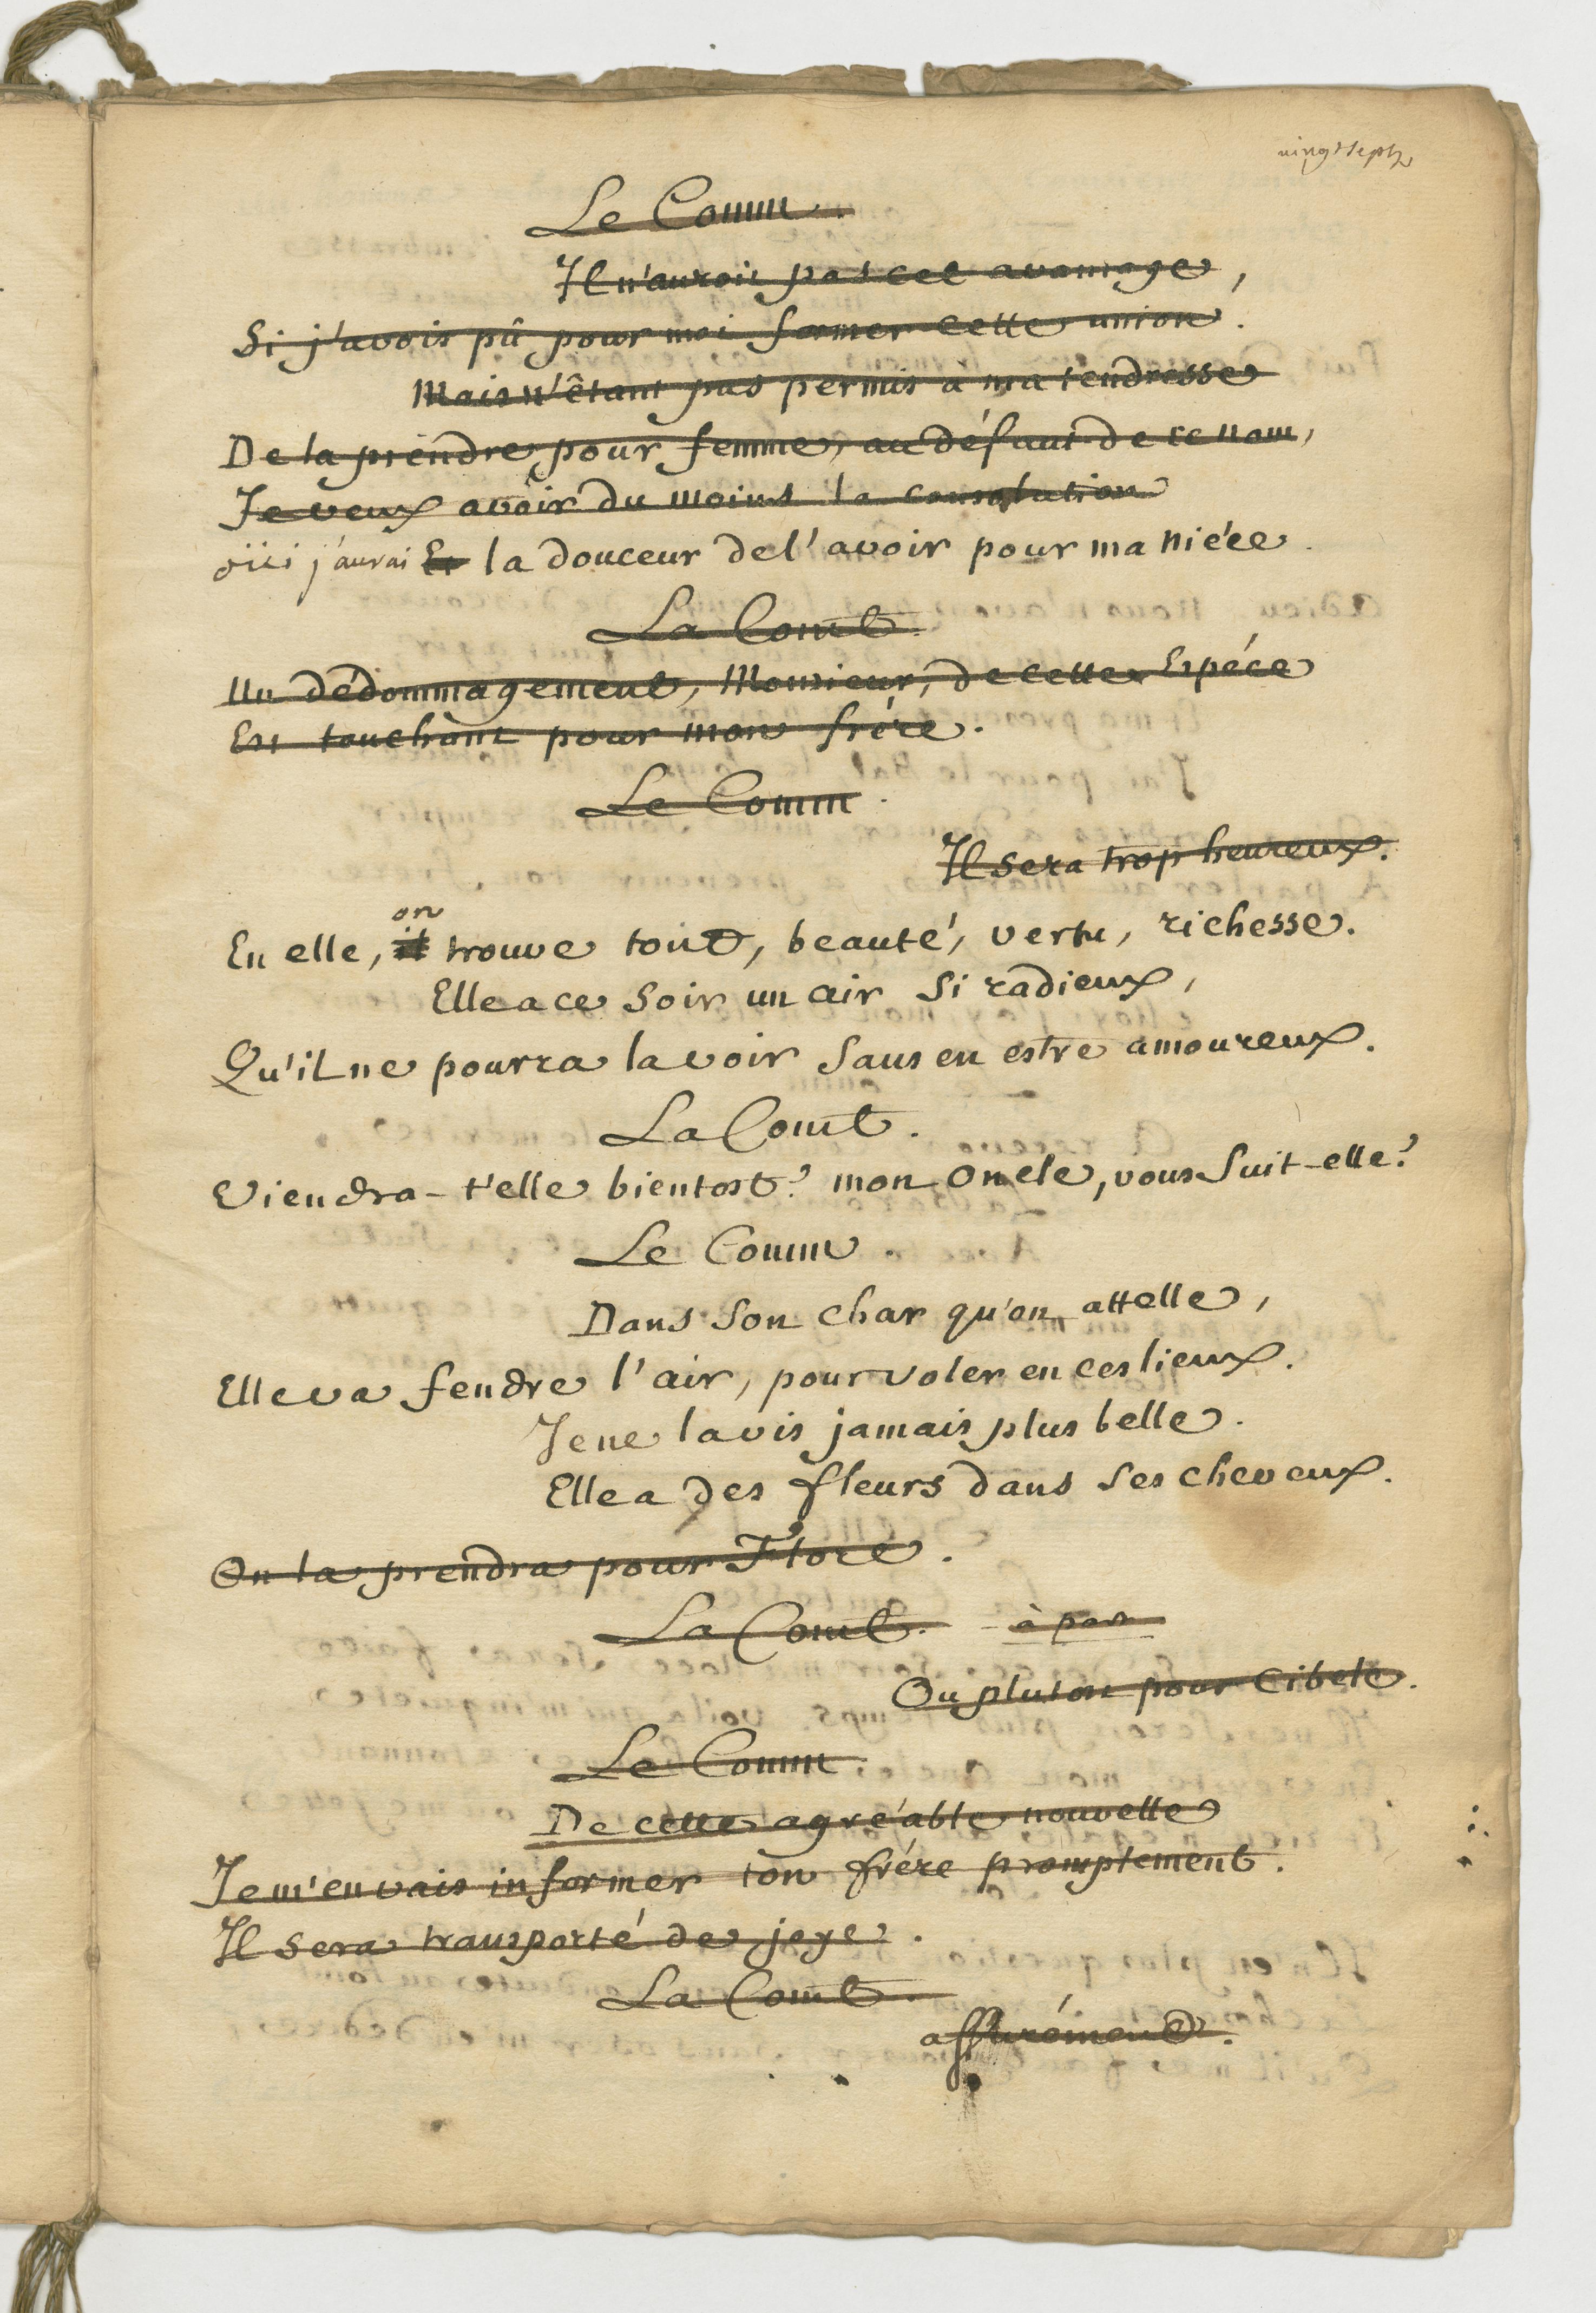 vingt sept
Le Comm.
Il n'auroit pas cet avantage,
Si j'avois pû pour moi former cette union.
Mais n'êtant pas permis à ma tendresse
De la prendre pour femme, au défaut de ce nom,
Je veux avoir du moins la consolation
j'aurai Et la douceur de l'avoir pour ma niéce.
La Comt.
Un dédommagement, Monsieur, de cette Espéce
Est touchant pour mon frére.
Le Comm.
Il sera trop heureux.
on
En elle, il trouve tout, beauté, vertu, richesse.
Elle a ce soir un air si radieux,
Qu'il ne pourra la voir sans en estre amoureux.
La Comt.
Viendra-t'elle bientost? mon Oncle, vous suit-elle?
Le Comm.
Dans son char qu'on attelle,
Elle va fendre l'air, pour voler en ces lieux.
Je ne la vis jamais plus belle.
Elle a des fleurs dans ses cheveux.
On la prendra pour Flore.
La Comt. à part
Ou plutost pour Cibele.
Le Comm.
De cette agréable nouvelle
Je m'en vais informer ton frére promptement.
Il sera transporté de joye.
La Comt.
assurément.